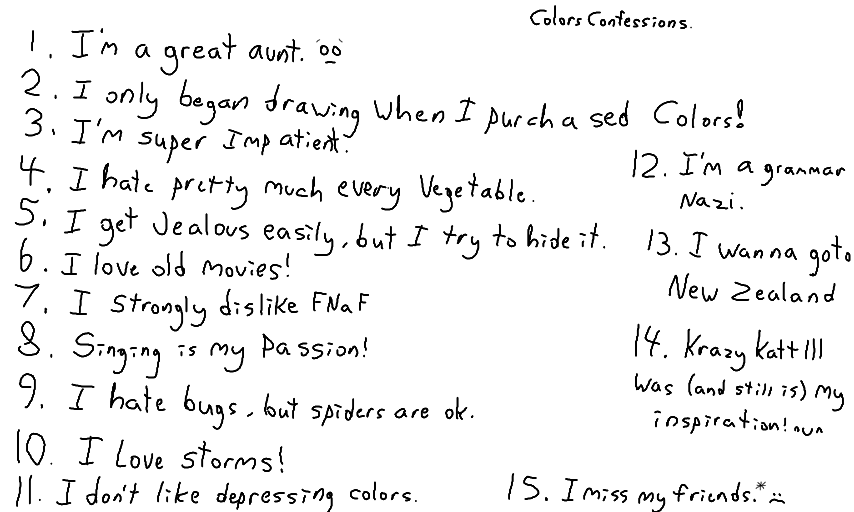 Colors Confessions.
1. I'm a great aunt.
2. I only began drawing when I purchased Colors!
3. I'm super Impatient.
4. I hate pretty much every Vegetable.
5. I get Jealous easily, but I try to hide it.
6. I love old movies!
7. I strongly dislike FNaF
8. Singing is my Passion!
9. I hate bugs, but spiders are ok.
10. I Love storms!
11. I don't like depressing colors.
12. I'm a grammar
Nazi.
13. I wanna goto
New Zealand
14. Krazy Katt111
was (and still is) My
inspiration! nun
15. I miss my friends.*